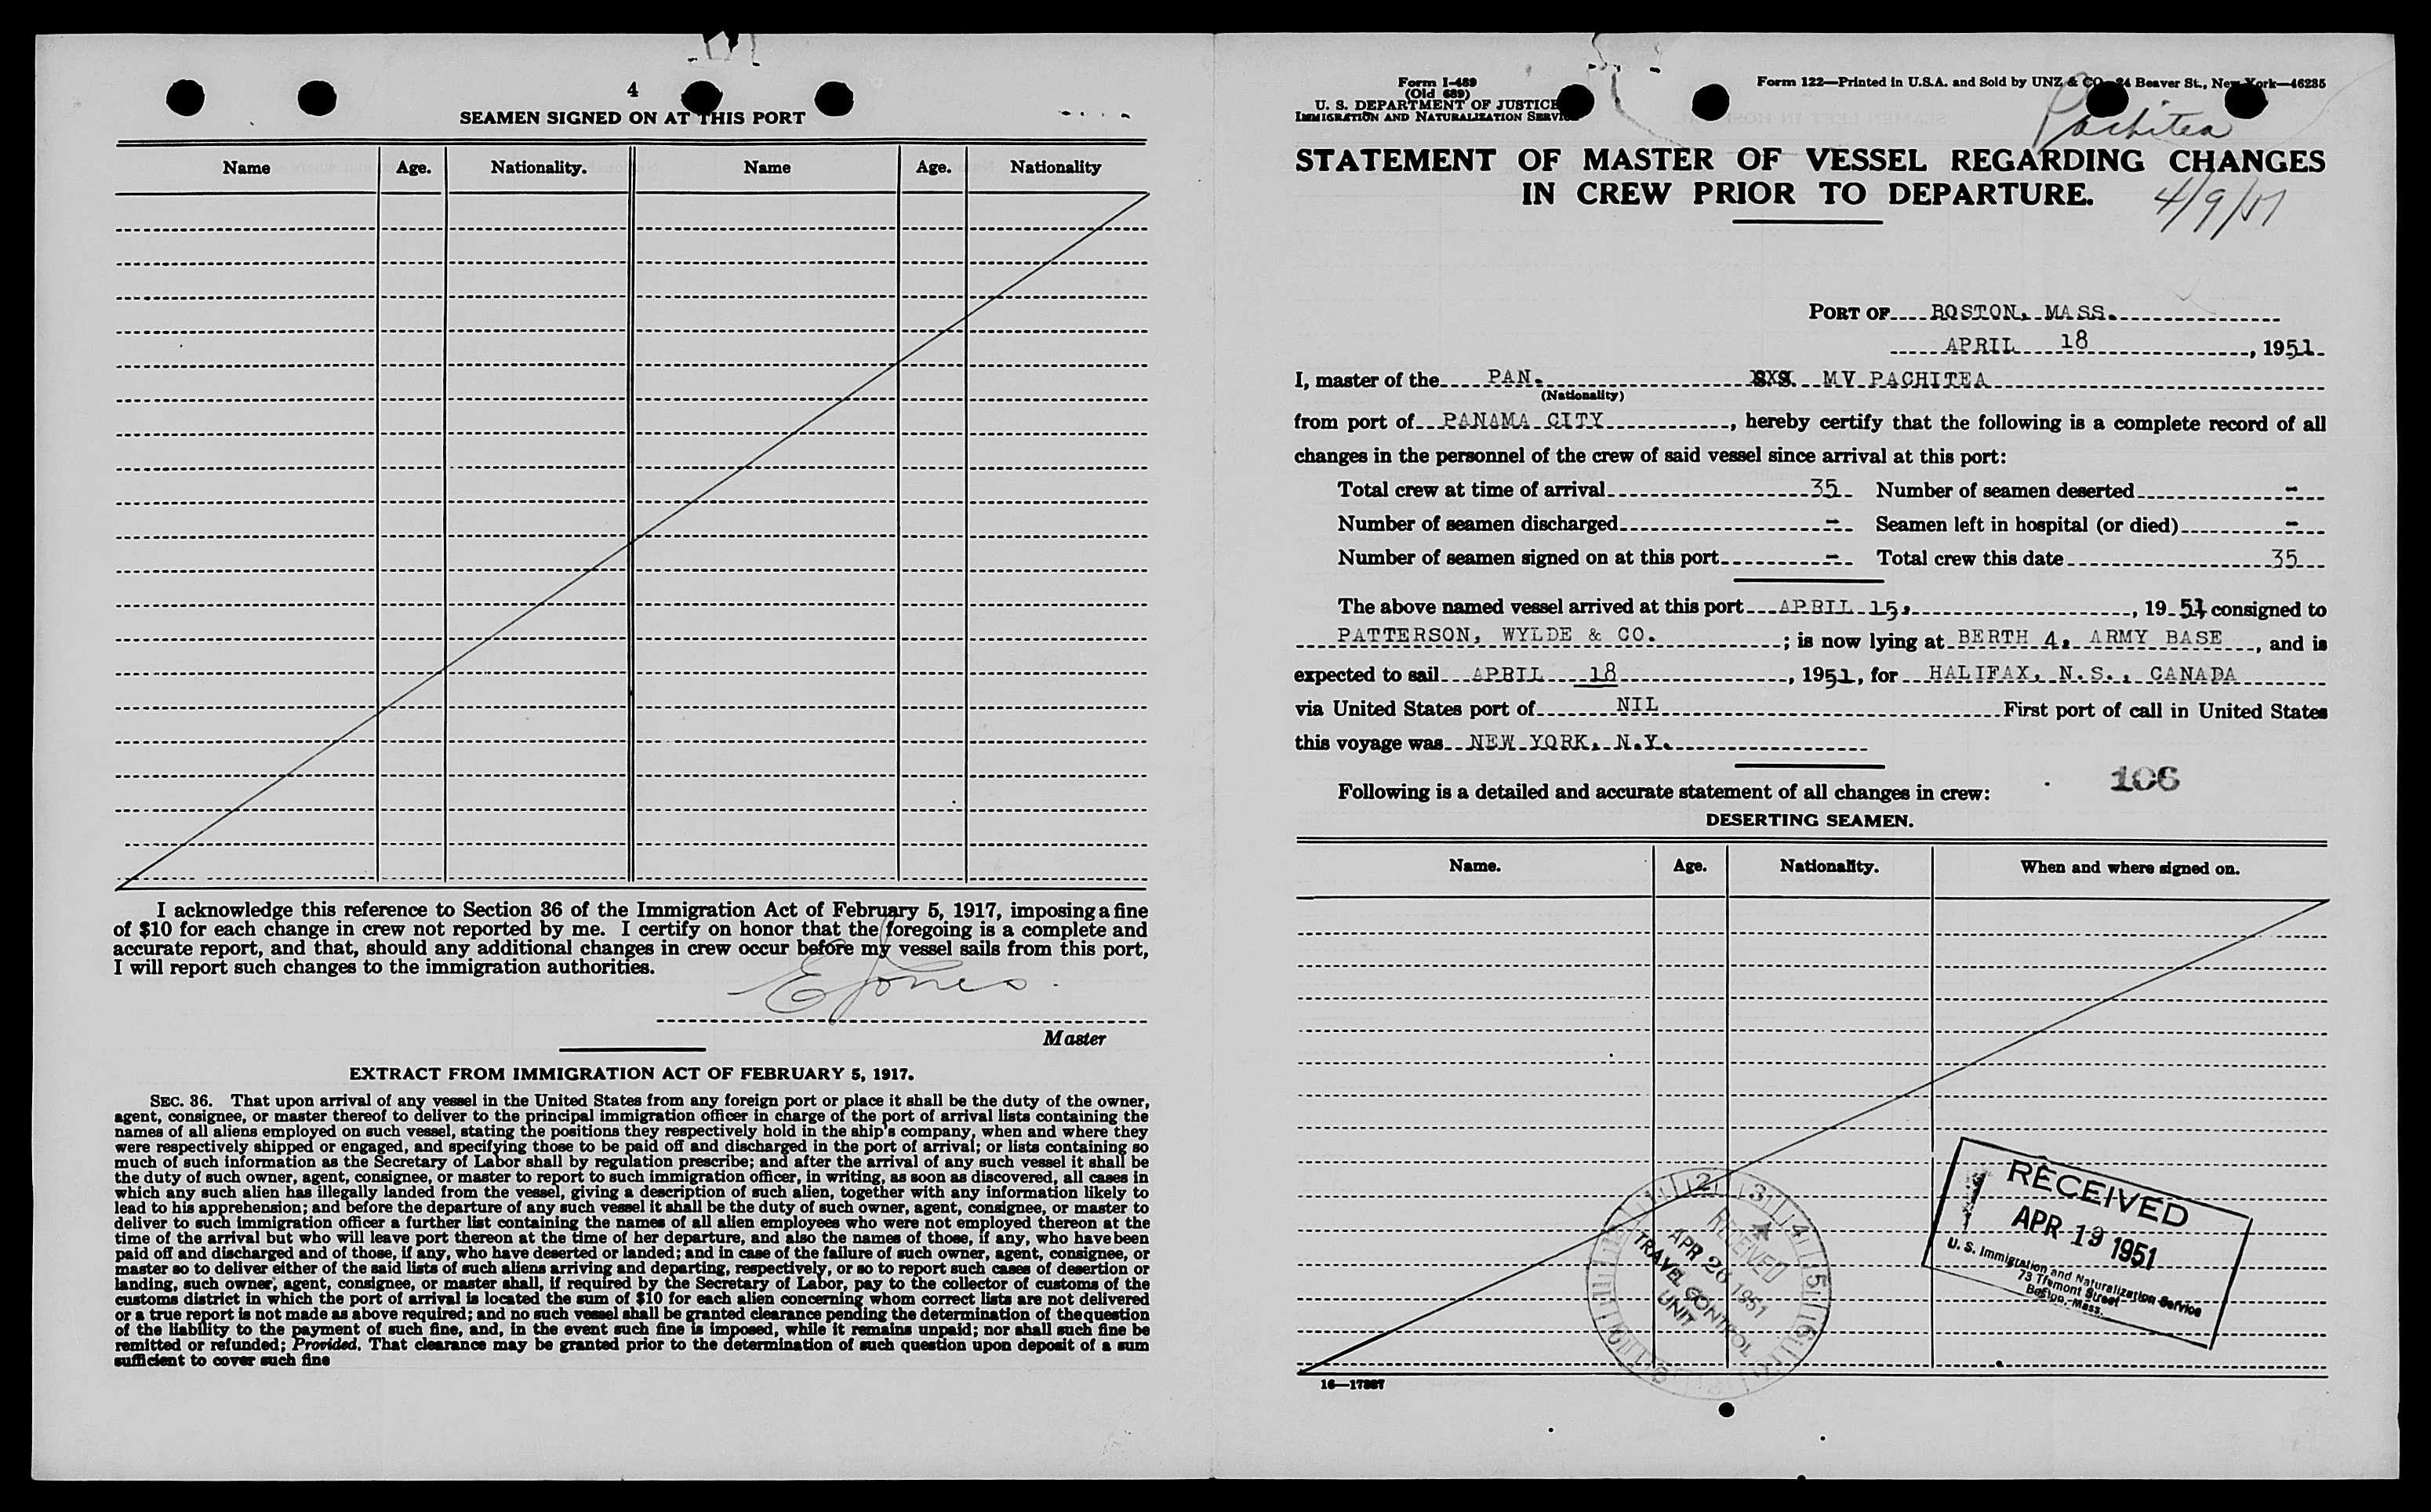 4
SEAMEN SIGNED ON AT THIS PORT
Name Age. Nationality. Name Age. Nationality
I acknowledge this reference to Section 36 of the Immigration Act of February 5, 1917, imposing a fine
of $10 for each change in crew not reported by me. I certify on honor that the foregoing is a complete and
accurate report, and that, should any additional changes in crew occur before my vessel sails from this port,
I will report such changes to the immigration authorities.
E Jones
Master
EXTRACT FROM IMMIGRATION ACT OF FEBRUARY 5, 1917.
SEC. 36. That upon arrival of any vessel in the United States from any foreign port or place it shall be the duty of the owner,
agent, consignee, or master thereof to deliver to the principal immigration officer in charge of the port of arrival lists containing the
names of all aliens employed on such vessel, stating the positions they respectively hold in the ship's company, when and where they
were respectively shipped or engaged, and specifying those to be paid off and discharged in the port of arrival; or lists containing so
much of such information as the Secretary of Labor shall by regulation prescribe; and after the arrival of any such vessel it shall be
the duty of such owner, agent, consignee, or master to report to such immigration officer, in writing, as soon as discovered, all cases in
which any such alien has illegally landed from the vessel, giving a description of such alien, together with any information likely to
lead to his apprehension; and before the departure of any such vessel it shall be the duty of such owner, agent, consignee, or master to
deliver to such immigration officer a further list containing the names of all alien employees who were not employed thereon at the
time of the arrival but who will leave port thereon at the time of her departure, and also the names of those, if any, who have been
paid off and discharged and of those, if any, who have deserted or landed; and in case of the failure of such owner, agent, consignee, or
master so to deliver either of the said lists of such aliens arriving and departing, respectively, or so to report such cases of desertion or
landing, such owner, agent, consignee, or master shall, if required by the Secretary of Labor, pay to the collector of customs of the
customs district in which the port of arrival is located the sum of $10 for each alien concerning whom correct lists are not delivered
or a true report is not made as above required; and no such vessel shall be granted clearance pending the determination of the question
of the liability to the payment of such fine, and, in the event such fine is imposed, while it remains unpaid; nor shall such fine be
remitted or refunded; Provided, That clearance may be granted prior to the determination of such question upon deposit of a sum
sufficient to cover such fine
Form I-489
(Old 689)
U. S. DEPARTMENT OF JUSTICE
IMMIGRATION AND NATURALIZATION SERVICE
Form 122—Printed in U.S.A. and Sold by UNZ & CO 24 Beaver St., New York—46285
Pachitea
STATEMENT OF MASTER OF VESSEL REGARDING CHANGES
IN CREW PRIOR TO DEPARTURE.
4/9/51
PORT OF BOSTON, MASS.
APRIL 18, 1951
I, master of the PAN. SXS. MV PACHITEA
(Nationality)
from port of PANAMA CITY, hereby certify that the following is a complete record of all
changes in the personnel of the crew of said vessel since arrival at this port:
Total crew at time of arrival 35 Number of seamen deserted -
Number of seamen discharged - Seamen left in hospital (or died) -
Number of seamen signed on at this port - Total crew this date 35
The above named vessel arrived at this port APRIL 15, , 1951 consigned to
PATTERSON, WYLDE & CO. ; is now lying at BERTH 4, ARMY BASE, and is
expected to sail APRIL 18, 1951, for HALIFAX, N.S., CANADA
via United States port of NIL First port of call in United States
this voyage was NEW YORK, N.Y.
106
Following is a detailed and accurate statement of all changes in crew:
DESERTING SEAMEN.
Name. Age. Nationality. When and where signed on.
RECEIVED
APR 19 1951
U. S. Immigration and Naturalization Service
73 Tremont Street
Boston, Mass.
1 2 3 4 5 6
RECEIVED
APR 20 1951
TRAVEL CONTROL
UNIT
16—17887